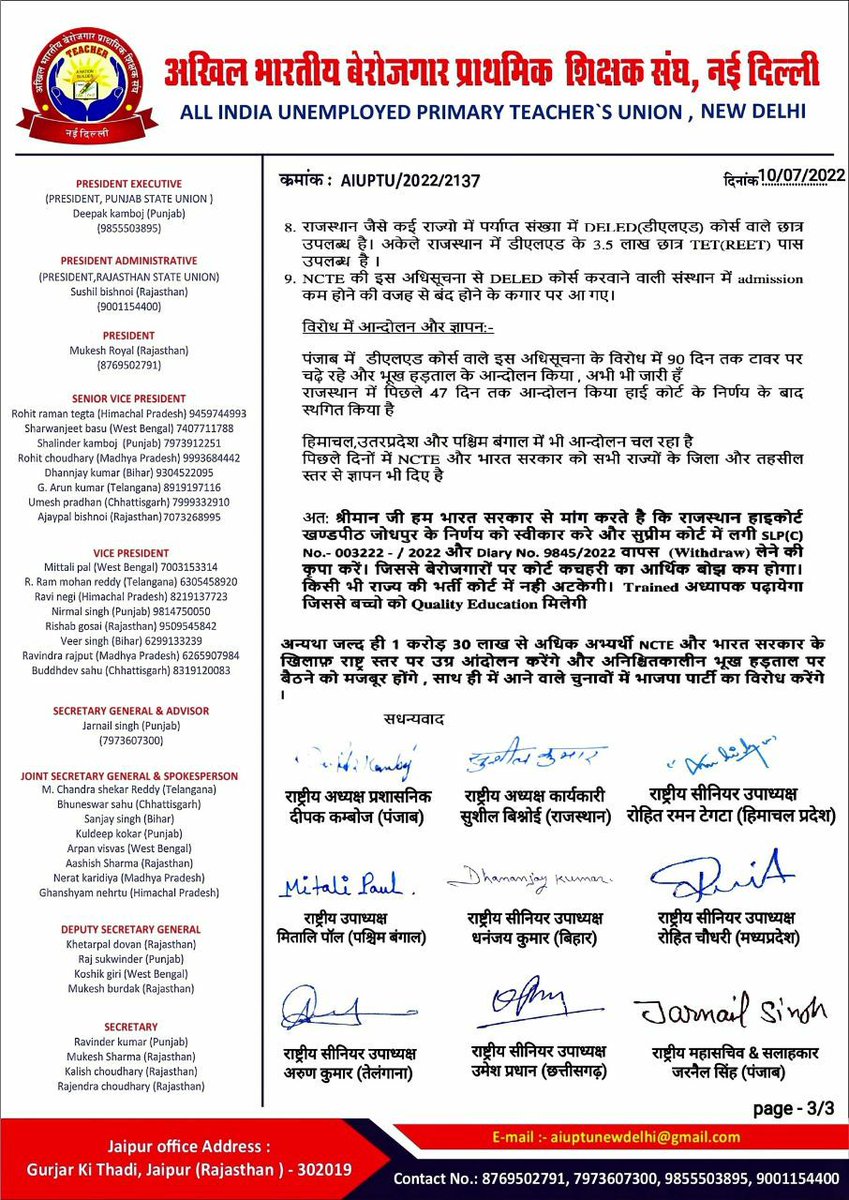 अखिल भारतीय बेरोजगार प्राथमिक शिक्षक संघ
TEACHER
नई दिल्ली
अखिल भारतीय बेरोजगार प्राथमिक शिक्षक संघ, नई दिल्ली
ALL INDIA UNEMPLOYED PRIMARY TEACHER`S UNION , NEW DELHI
PRESIDENT EXECUTIVE
(PRESIDENT, PUNJAB STATE UNION )
Deepak kamboj (Punjab)
(9855503895)
PRESIDENT ADMINISTRATIVE
(PRESIDENT,RAJASTHAN STATE UNION)
Sushil bishnoi (Rajasthan)
(9001154400)
PRESIDENT
Mukesh Royal (Rajasthan)
(8769502791)
SENIOR VICE PRESIDENT
Rohit raman tegta (Himachal Pradesh) 9459744993
Sharwanjeet basu (West Bengal) 7407711788
Shalinder kamboj (Punjab) 7973912251
Rohit choudhary (Madhya Pradesh) 9993684442
Dhannjay kumar (Bihar) 9304522095
G. Arun kumar (Telangana) 8919197116
Umesh pradhan (Chhattisgarh) 7999332910
Ajaypal bishnoi (Rajasthan) 7073268995
VICE PRESIDENT
Mittali pal (West Bengal) 7003153314
R. Ram mohan reddy (Telangana) 6305458920
Ravi negi (Himachal Pradesh) 8219137723
Nirmal singh (Punjab) 9814750050
Rishab gosai (Rajasthan) 9509545842
Veer singh (Bihar) 6299133239
Ravindra rajput (Madhya Pradesh) 6265907984
Buddhdev sahu (Chhattisgarh) 8319120083
SECRETARY GENERAL & ADVISOR
Jarnail singh (Punjab)
(7973607300)
JOINT SECRETARY GENERAL & SPOKESPERSON
M. Chandra shekar Reddy (Telangana)
Bhuneswar sahu (Chhattisgarh)
Sanjay singh (Bihar)
Kuldeep kokar (Punjab)
Arpan visvas (West Bengal)
Aashish Sharma (Rajasthan)
Nerat karidiya (Madhya Pradesh)
Ghanshyam nehrtu (Himachal Pradesh)
DEPUTY SECRETARY GENERAL
Khetarpal dovan (Rajasthan)
Raj sukwinder (Punjab)
Koshik giri (West Bengal)
Mukesh burdak (Rajasthan)
SECRETARY
Ravinder kumar (Punjab)
Mukesh Sharma (Rajasthan)
Kalish choudhary (Rajasthan)
Rajendra choudhary (Rajasthan)
क्रमांक : AIUPTU/2022/2137
दिनांक 10/07/2022
8. राजस्थान जैसे कई राज्यो में पर्याप्त संख्या में DELED(डीएलएड) कोर्स वाले छात्र
उपलब्ध है। अकेले राजस्थान में डीएलएड के 3.5 लाख छात्र TET(REET) पास
उपलब्ध है ।
9. NCTE की इस अधिसूचना से DELED कोर्स करवाने वाली संस्थान में admission
कम होने की वजह से बंद होने के कगार पर आ गए।
विरोध में आन्दोलन और ज्ञापन:-
पंजाब में डीएलएड कोर्स वाले इस अधिसूचना के विरोध में 90 दिन तक टावर पर
चढ़े रहे और भूख हड़ताल के आन्दोलन किया , अभी भी जारी हँ
राजस्थान में पिछले 47 दिन तक आन्दोलन किया हाई कोर्ट के निर्णय के बाद
स्थगित किया है
हिमाचल,उतरप्रदेश और पश्चिम बंगाल में भी आन्दोलन चल रहा है
पिछले दिनों में NCTE और भारत सरकार को सभी राज्यों के जिला और तहसील
स्तर से ज्ञापन भी दिए है
अतः श्रीमान जी हम भारत सरकार से मांग करते है कि राजस्थान हाइकोर्ट
खण्डपीठ जोधपुर के निर्णय को स्वीकार करे और सुप्रीम कोर्ट में लगी SLP(C)
No.- 003222 - / 2022 और Diary No. 9845/2022 वापस (Withdraw) लेने की
कृपा करें। जिससे बेरोजगारों पर कोर्ट कचहरी का आर्थिक बोझ कम होगा।
किसी भी राज्य की भर्ती कोर्ट में नही अटकेगी। Trained अध्यापक पढ़ायेगा
जिससे बच्चो को Quality Education मिलेगी
अन्यथा जल्द ही 1 करोड़ 30 लाख से अधिक अभ्यर्थी NCTE और भारत सरकार के
खिलाफ़ राष्ट्र स्तर पर उग्र आंदोलन करेंगे और अनिश्चितकालीन भूख हड़ताल पर
बैठने को मजबूर होंगे , साथ ही में आने वाले चुनावों में भाजपा पार्टी का विरोध करेंगे
।
सधन्यवाद
Kamboj सुशील कुमार
राष्ट्रीय अध्यक्ष प्रशासनिक राष्ट्रीय अध्यक्ष कार्यकारी राष्ट्रीय सीनियर उपाध्यक्ष
दीपक कम्बोज (पंजाब) सुशील बिश्नोई (राजस्थान) रोहित रमन टेगटा (हिमाचल प्रदेश)
Mitali Paul. Dhananjay Kumar.
राष्ट्रीय उपाध्यक्ष राष्ट्रीय सीनियर उपाध्यक्ष राष्ट्रीय सीनियर उपाध्यक्ष
मितालि पॉल (पश्चिम बंगाल) धनंजय कुमार (बिहार) रोहित चौधरी (मध्यप्रदेश)
Jarnail Singh
राष्ट्रीय सीनियर उपाध्यक्ष राष्ट्रीय सीनियर उपाध्यक्ष राष्ट्रीय महासचिव & सलाहकार
अरुण कुमार (तेलंगाना) उमेश प्रधान (छत्तीसगढ़) जरनैल सिंह (पंजाब)
page - 3/3
Jaipur office Address :
Gurjar Ki Thadi, Jaipur (Rajasthan ) - 302019
E-mail :- aiuptunewdelhi@gmail.com
Contact No.: 8769502791, 7973607300, 9855503895, 9001154400